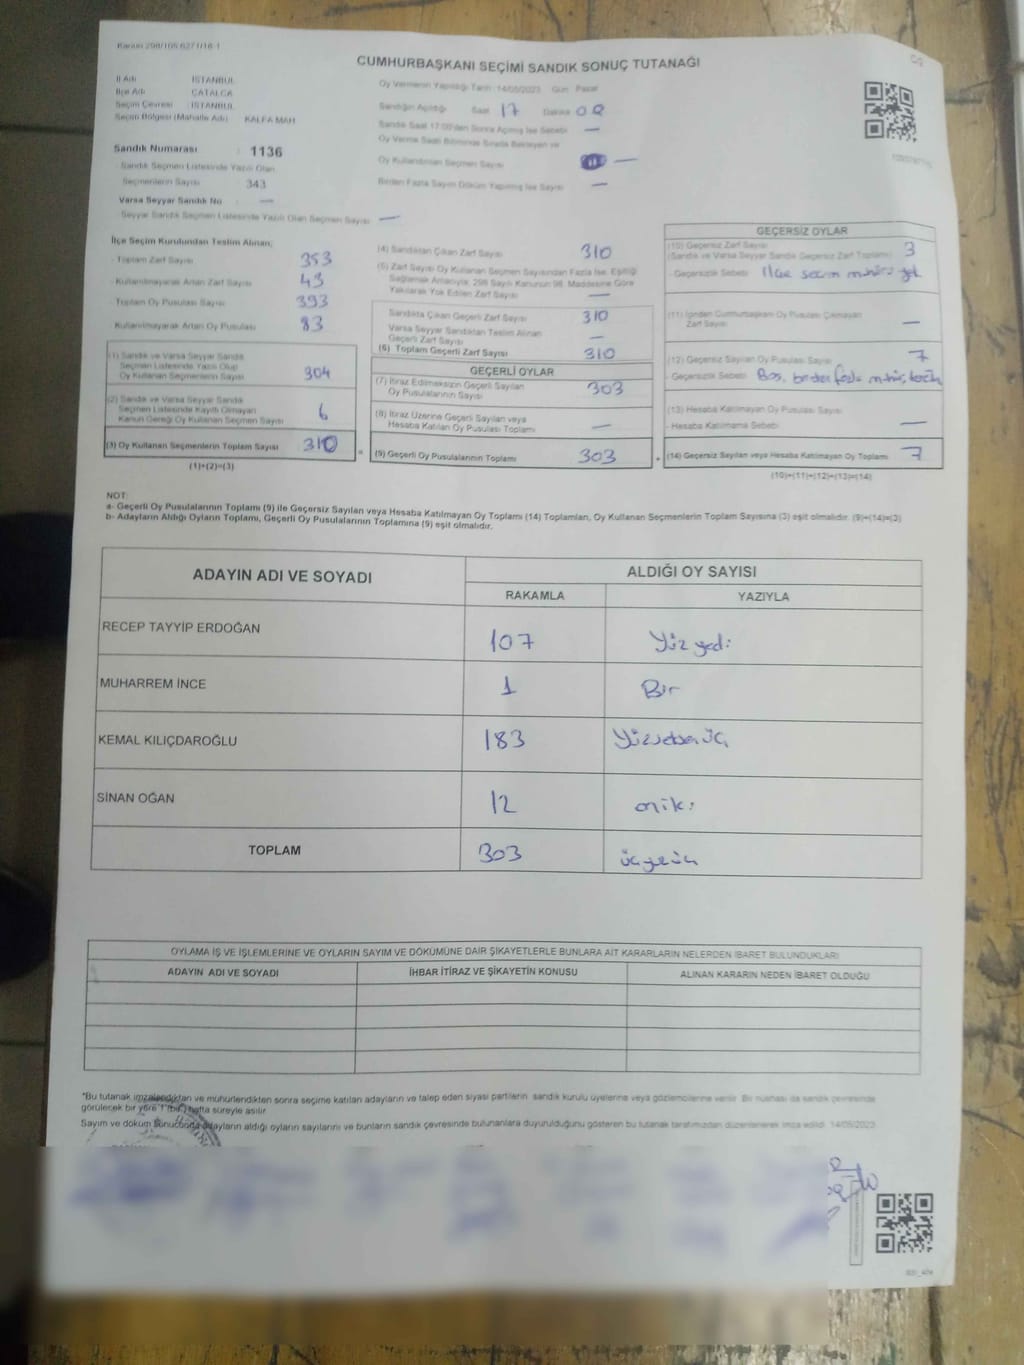 Kanun 298/105 6271/16-1
CUMHURBAŞKANI SEÇİMİ SANDIK SONUÇ TUTANAĞI
İl Adı : İSTANBUL
İlçe Adı : ÇATALCA
Seçim Çevresi : İSTANBUL
Seçim Bölgesi (Mahalle Adı) : KALFA MAH
Sandık Numarası : 1136
Sandık Seçmen Listesinde Yazılı Olan
Seçmenlerin Sayısı 343
Varsa Seyyar Sandık No : —
Seyyar Sandık Seçmen Listesinde Yazılı Olan Seçmen Sayısı —
Oy Vermenin Yapıldığı Tarih : 14/05/2023 Gün : Pazar
Sandığın Açıldığı Saat 17 Dakika 02
Sandık Saat 17:00'den Sonra Açılmış İse Sebebi —
Oy Verme Saati Bitiminde Sırada Bekleyen ve
Oy Kullandırılan Seçmen Sayısı —
Birden Fazla Sayım Döküm Yapılmış İse Sayısı —
İlçe Seçim Kurulundan Teslim Alınan;
- Toplam Zarf Sayısı 353
- Kullanılmayarak Artan Zarf Sayısı 43
- Toplam Oy Pusulası Sayısı 393
- Kullanılmayarak Artan Oy Pusulası 83
(1) Sandık ve Varsa Seyyar Sandık
Seçmen Listesinde Yazılı Olup
Oy Kullanan Seçmenlerin Sayısı 304
(2) Sandık ve Varsa Seyyar Sandık
Seçmen Listesinde Kayıtlı Olmayan
Kanun Gereği Oy Kullanan Seçmen Sayısı 6
(3) Oy Kullanan Seçmenlerin Toplam Sayısı 310
(1)+(2)=(3)
(4) Sandıktan Çıkan Zarf Sayısı 310
(5) Zarf Sayısı Oy Kullanan Seçmen Sayısından Fazla İse, Eşitliği
Sağlamak Amacıyla, 298 Sayılı Kanunun 98. Maddesine Göre
Yakılarak Yok Edilen Zarf Sayısı —
Sandıkta Çıkan Geçerli Zarf Sayısı 310
Varsa Seyyar Sandıktan Teslim Alınan
Geçerli Zarf Sayısı —
(6) Toplam Geçerli Zarf Sayısı 310
GEÇERLİ OYLAR
(7) İtiraz Edilmeksizin Geçerli Sayılan
Oy Pusulalarının Sayısı 303
(8) İtiraz Üzerine Geçerli Sayılan veya
Hesaba Katılan Oy Pusulası Toplamı —
(9) Geçerli Oy Pusulalarının Toplamı 303
GEÇERSİZ OYLAR
(10) Geçersiz Zarf Sayısı 3
(Sandık ve Varsa Seyyar Sandık Geçersiz Zarf Toplamı)
- Geçersizlik Sebebi : İlçe seçim mührü yok
(11) İçinden Cumhurbaşkanı Oy Pusulası Çıkmayan
Zarf Sayısı —
(12) Geçersiz Sayılan Oy Pusulası Sayısı 7
- Geçersizlik Sebebi : Boş, birden fazla mühür
(13) Hesaba Katılmayan Oy Pusulası Sayısı
- Hesaba Katılmama Sebebi —
(14) Geçersiz Sayılan veya Hesaba Katılmayan Oy Toplamı 7
(10)+(11)+(12)+(13)=(14)
NOT:
a- Geçerli Oy Pusulalarının Toplamı (9) ile Geçersiz Sayılan veya Hesaba Katılmayan Oy Toplamı (14) Toplamları, Oy Kullanan Seçmenlerin Toplam Sayısına (3) eşit olmalıdır. (9)+(14)=(3)
b- Adayların Aldığı Oyların Toplamı, Geçerli Oy Pusulalarının Toplamına (9) eşit olmalıdır.
ADAYIN ADI VE SOYADI ALDIĞI OY SAYISI
RAKAMLA YAZIYLA
RECEP TAYYİP ERDOĞAN 107 Yüz yedi
MUHARREM İNCE 1 Bir
KEMAL KILIÇDAROĞLU 183 Yüzseksenüç
SİNAN OĞAN 12 oniki
TOPLAM 303 üçyüzüç
OYLAMA İŞ VE İŞLEMLERİNE VE OYLARIN SAYIM VE DÖKÜMÜNE DAİR ŞİKAYETLERLE BUNLARA AİT KARARLARIN NELERDEN İBARET BULUNDUKLARI
ADAYIN ADI VE SOYADI İHBAR İTİRAZ VE ŞİKAYETİN KONUSU ALINAN KARARIN NEDEN İBARET OLDUĞU
*Bu tutanak imzalandıktan ve mühürlendikten sonra seçime katılan adayların ve talep eden siyasi partilerin sandık kurulu üyelerine veya gözlemcilerine verilir. Bir nüshası da sandık çevresinde
görülecek bir yere 1 (bir) hafta süreyle asılır.
Sayım ve döküm sonucunda adayların aldığı oyların sayılarını ve bunların sandık çevresinde bulunanlara duyurulduğunu gösteren bu tutanak tarafımızdan düzenlenerek imza edildi. 14/05/2023